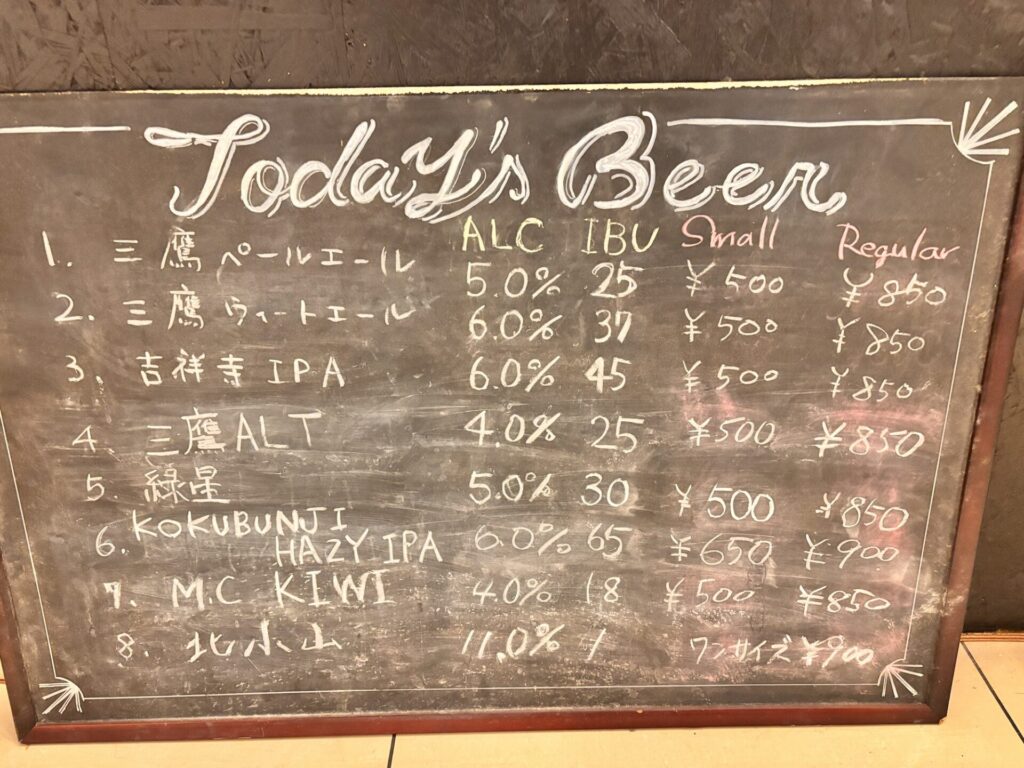 Today's Beer
ALC IBU Small Regular
1. 三鷹 ペールエール 5.0% 25 ¥500 ¥850
2. 三鷹 ウィートエール 6.0% 37 ¥500 ¥850
3. 吉祥寺 IPA 6.0% 45 ¥500 ¥850
4 三鷹ALT 4.0% 25 ¥500 ¥850
5. 緑星 5.0% 30 ¥500 ¥850
6. KOKUBUNJI
HAZY IPA 6.0% 65 ¥650 ¥900
7. M.C KIWI 4.0% 18 ¥500 ¥850
8. 北小山 11.0% / ワンサイズ ¥900